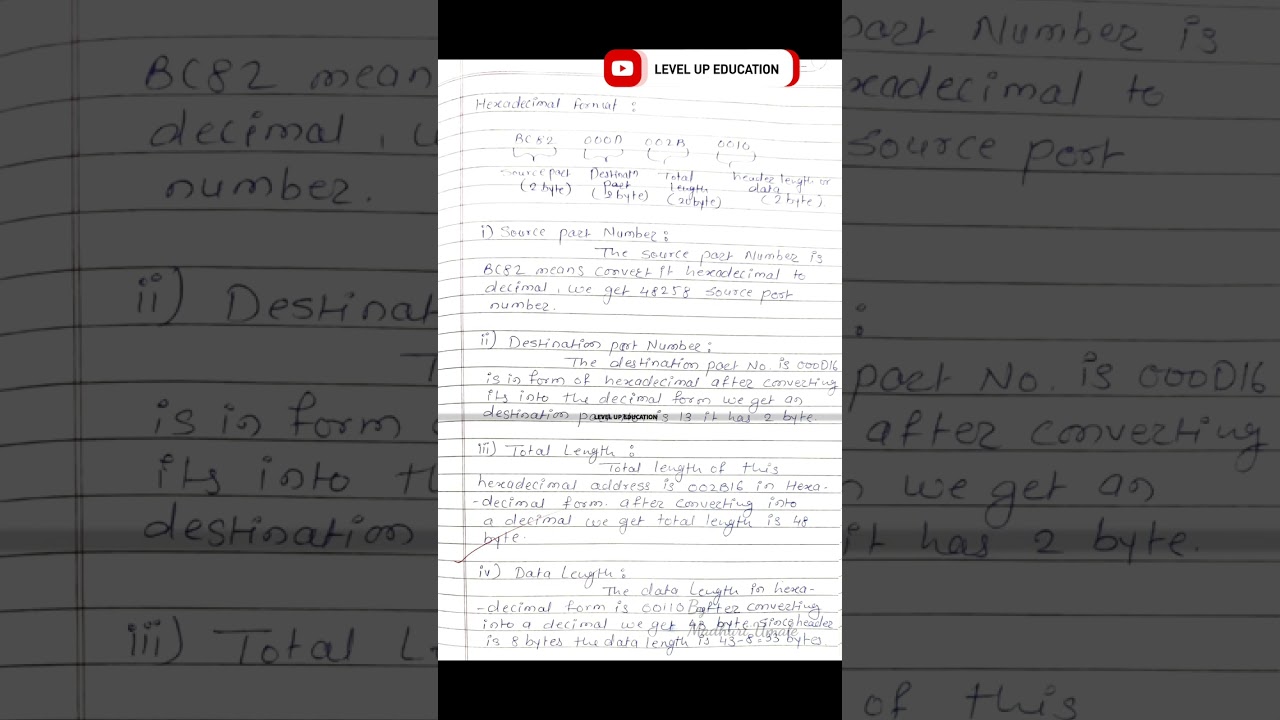 LEVEL UP EDUCATION
Hexadecimal Format :
BC82 000D 002B 0010
Source port Destinatn Total header length or
(2 byte) port length data
(2 byte) (20 byte) (2 byte)
i) Source port Number :
The source port Number is
BC82 means convert it hexadecimal to
decimal, we get 48258 source port
number.
ii) Destination port Number :
The destination port No. is 000D16
is in form of hexadecimal after converting
its into the decimal form we get an
destination is 13 it has 2 byte.
LEVEL UP EDUCATION
iii) Total Length :
Total length of this
hexadecimal address is 002B16 in Hexa-
-decimal form. after converting into
a decimal we get total length is 48
byte.
iv) Data Length :
The data Length in hexa-
-decimal form is after converting
into a decimal we get 43 byte. Since header
is 8 bytes the data length is 43-8=35 bytes.
BC82 mean
decimal, 
number.
ii) Destinat
is in form
its into t
destination
iii) Total L
port Number is
xadecimal to
source port
:
port No. is 000D16
after converting
we get an
it has 2 byte.
of this